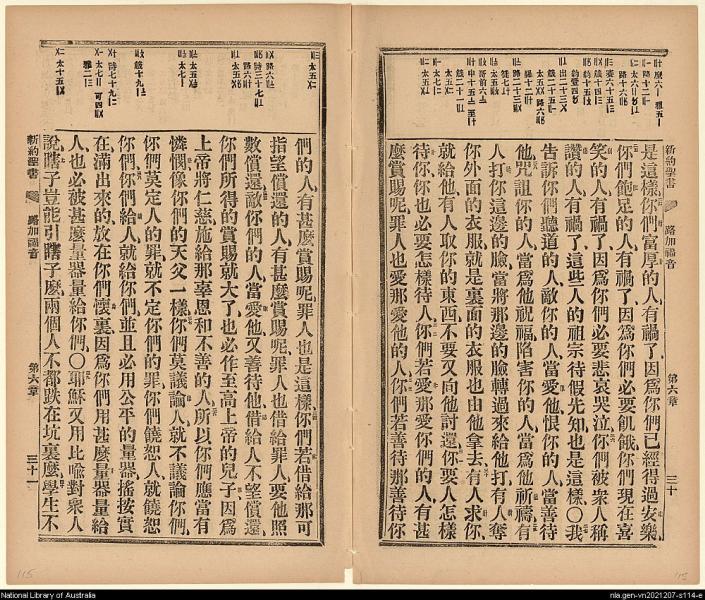 新約聖書 路加福音 第六章 三十
是這樣你們富厚的人有禍了因爲你們已經得過安樂
你們飽足的人有禍了因爲你們必要飢餓你們現在喜
笑的人有禍了因爲你們必要悲哀哭泣你們被衆人稱
讚的人有禍了這些人的祖宗待假先知也是這樣〇我
告訴你們聽道的人敵你的人當愛他恨你的人當善待
他咒詛你的人當爲他祝福陷害你的人當爲他祈禱有
人打你這邊的臉當將那邊的臉轉過來給他打有人奪
你外面的衣服就是裏面的衣服也由他拿去有人求你
就給他有人取你的東西不要又向他討還你要人怎樣
待你你也必要怎樣待人你們若愛那愛你們的人有甚
麼賞賜呢罪人也愛那愛他的人你們若善待那善待你
們的人有甚麼賞賜呢罪人也是這樣你們若借給那可
指望償還的人有甚麼賞賜呢罪人也借給罪人要他照
數償還敵你們的人當愛他又善待他借給人不望償還
你們所得的賞賜就大了也必作至高上帝的兒子因爲
上帝將仁慈施給那辜恩和不善的人所以你們應當有
憐憫像你們的天父一樣你們莫議論人就不議論你們
你們莫定人的罪就不定你們的罪你們饒恕人就饒恕
你們你們給人就給你們並且必用公平的量器搖按實
在滿出來的放在你們懷裏因爲你們用甚麼量器量給
人也必被甚麼量器量給你們〇耶穌又用比喩對衆人
說瞎子豈能引瞎子麼兩個人不都跌在坑裏麼學生不
新約聖書 路加福音 第六章 三十一
115
115
National Library of Australia
nla.gen-vn2021207-s114-e